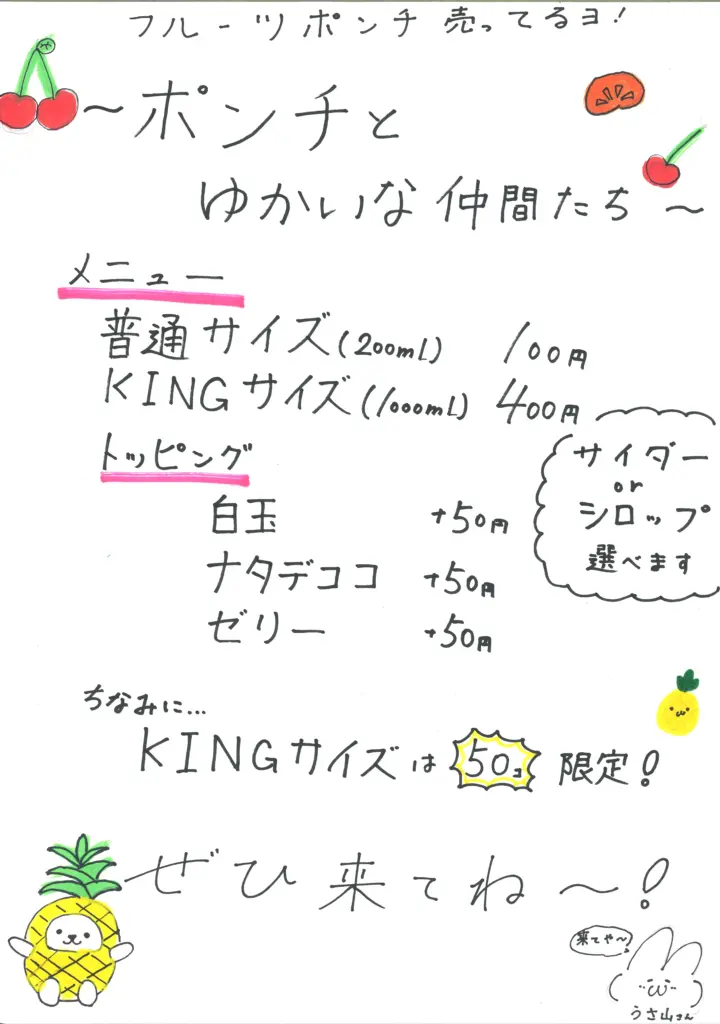 フルーツポンチ売ってるヨ!
~ポンチと
ゆかいな仲間たち~
メニュー
普通サイズ(200ml) 100円
KINGサイズ(1000ml) 400円
トッピング
白玉 +50円
ナタデココ +50円
ゼリー +50円
サイダー
or
シロップ
選べます
ちなみに...
KINGサイズは50コ限定!
ぜひ来てね~!
来てや~!
うさ山さん